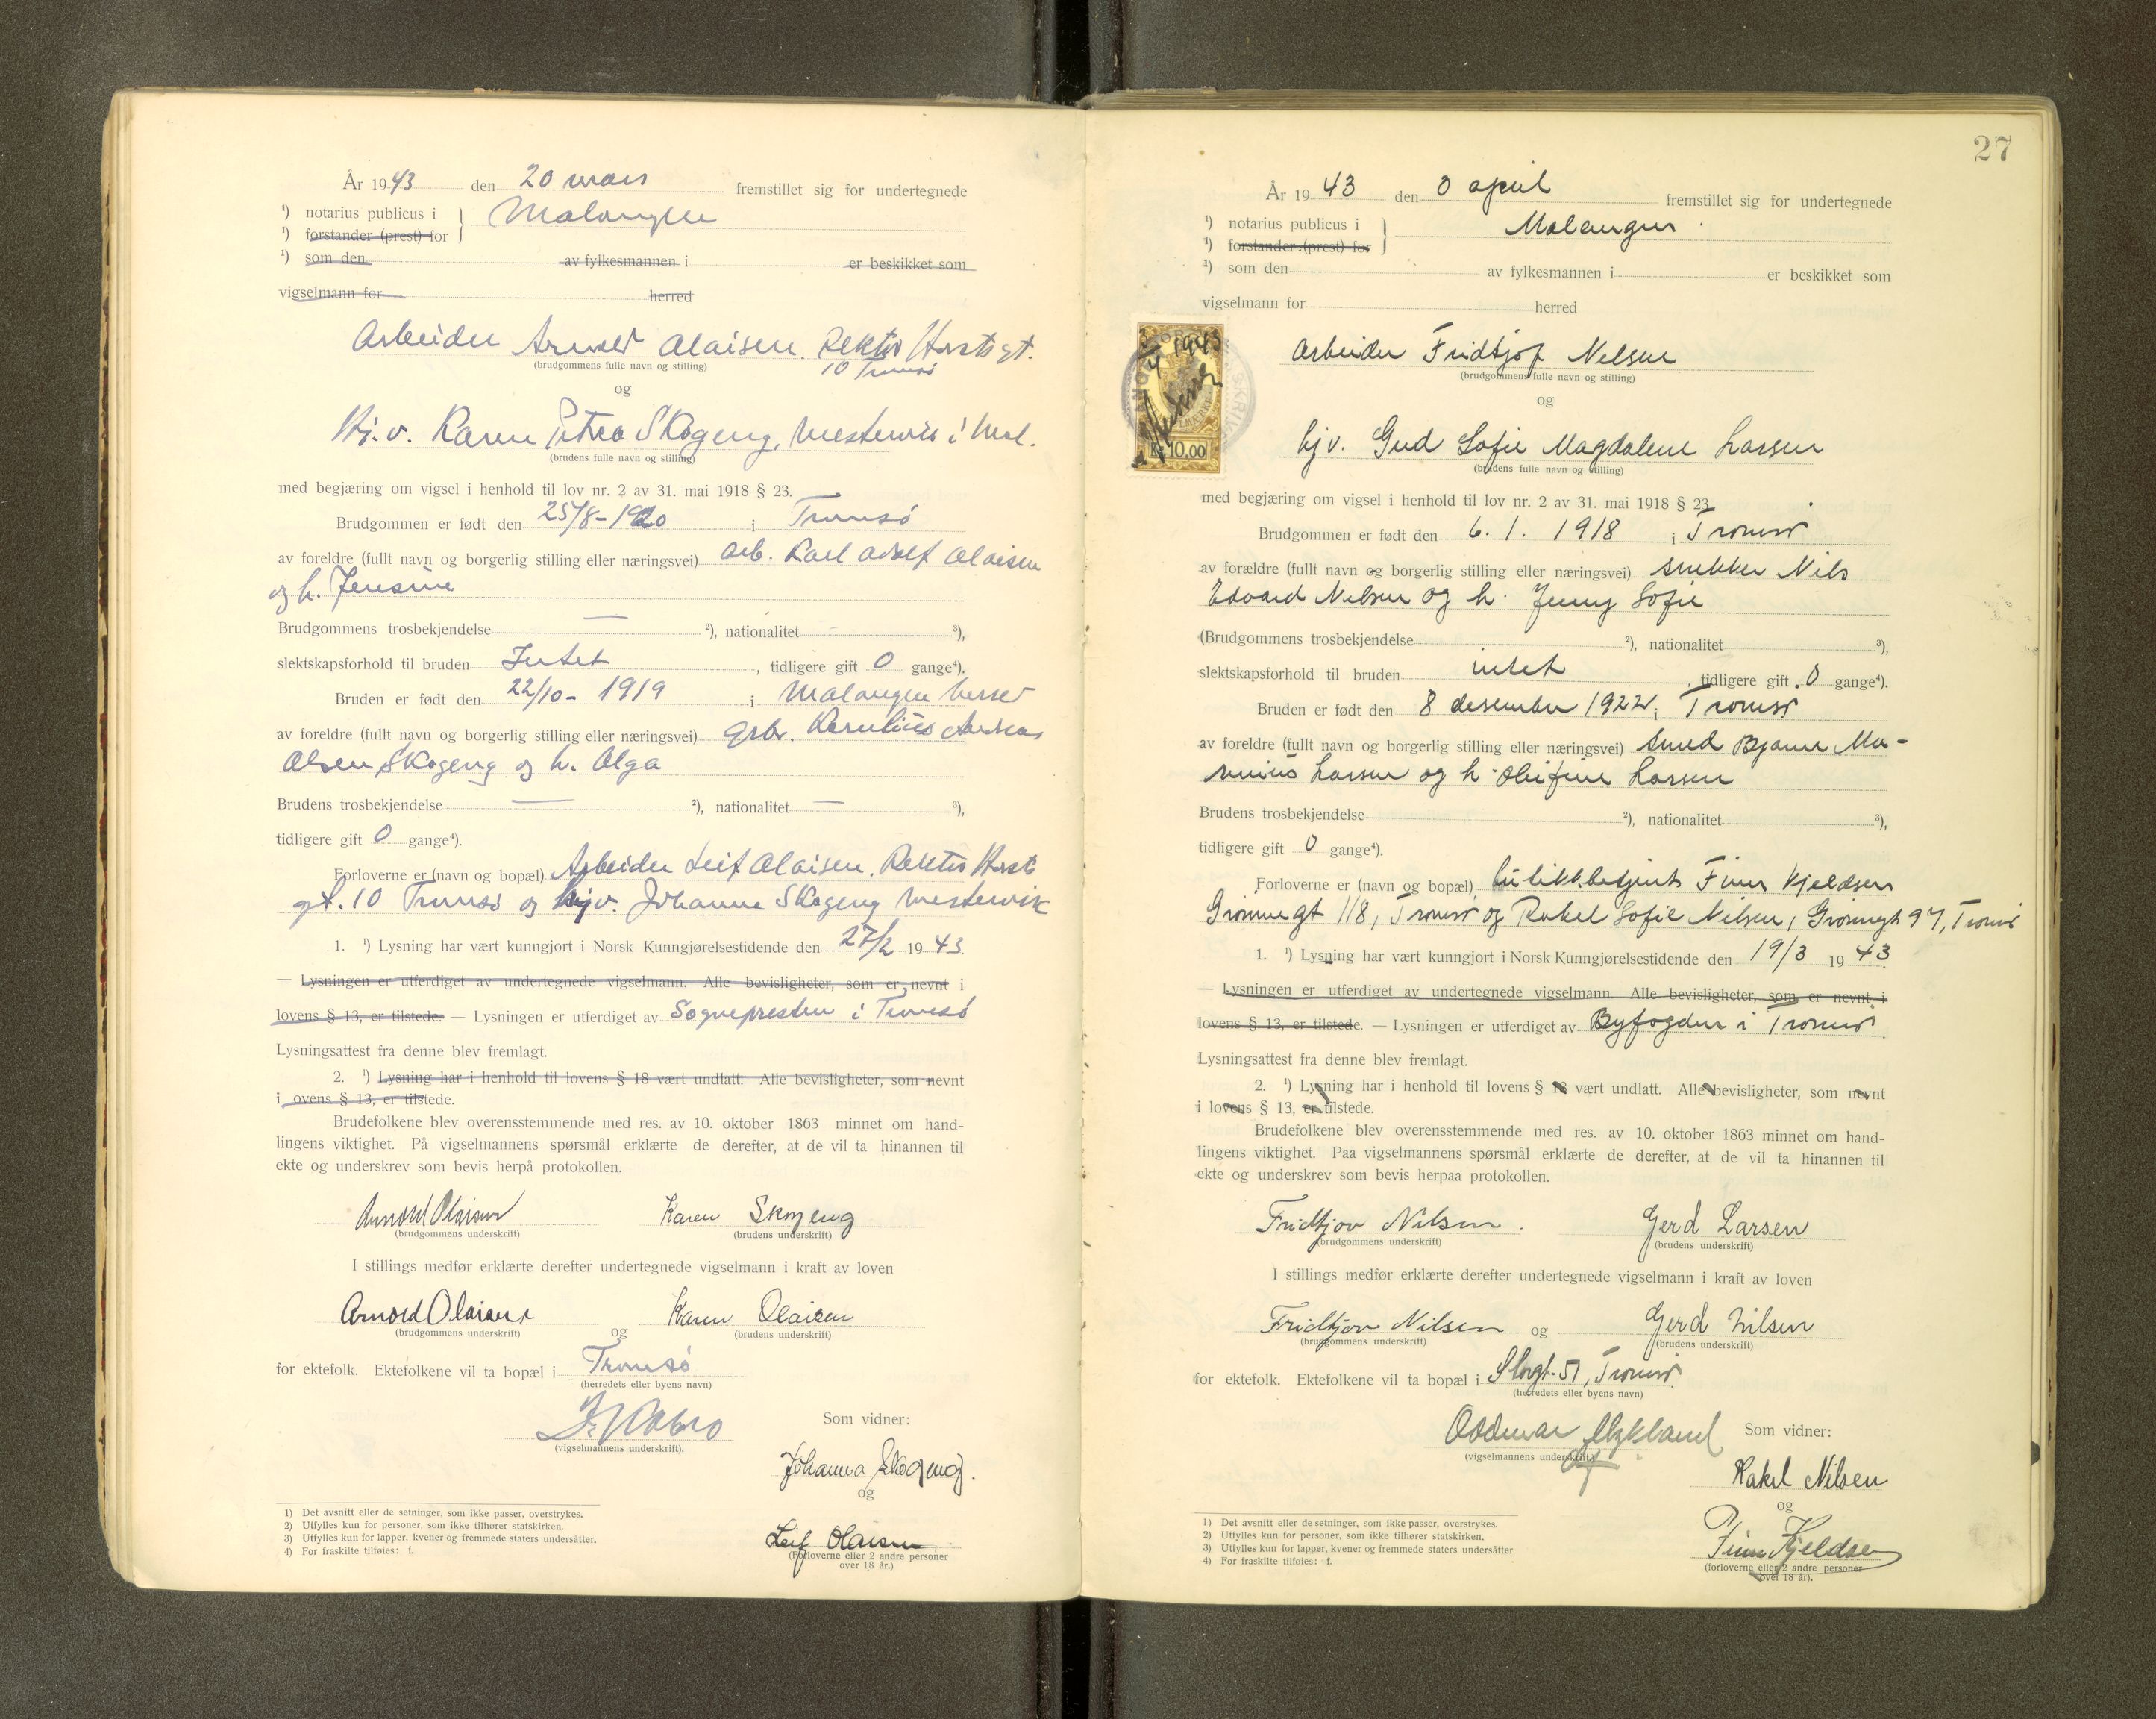 År 1943 den 20 mars fremstillet sig for undertegnede
¹) notarius publicus i Malangen
¹) forstander (prest) for
¹) som den av fylkesmannen i er beskikket som
vigselmann for herred
Arbeider Arnold Olaisen. Rektor Horsts gt.
10 Tromsö
(brudgommens fulle navn og stilling)
og
Hj.v. Karen Petra Skogeng, Mestervik i Mal.
(brudens fulle navn og stilling)
med begjæring om vigsel i henhold til lov nr. 2 av 31. mai 1918 § 23.
Brudgommen er født den 25/8-1920 i Tromsö
av foreldre (fullt navn og borgerlig stilling eller næringsvei) arb. Karl Adolf Olaisen
og h. Jensine
Brudgommens trosbekjendelse — ²), nationalitet — ³),
slektskapsforhold til bruden Intet, tidligere gift 0 gange⁴).
Bruden er født den 22/10- 1919 i Malangen herred
av foreldre (fullt navn og borgerlig stilling eller næringsvei) gbr. Karelius Andreas
Olsen Skogeng og h. Olga
Brudens trosbekjendelse — ²), nationalitet — ³),
tidligere gift 0 gange⁴).
Forloverne er (navn og bopæl) Arbeider Leif Olaisen. Rektor Horsts
gt. 10 Tromsö og hjv. Johanna Skogeng Mestervik
1. ¹) Lysning har vært kunngjort i Norsk Kunngjørelsestidende den 27/2 1943.
— Lysningen er utferdiget av undertegnede vigselmann. Alle bevisligheter, som er nevnt i
lovens § 13, er tilstede. — Lysningen er utferdiget av Sognepresten i Tromsö
Lysningsattest fra denne blev fremlagt.
2. ¹) Lysning har i henhold til lovens § 18 vært undlatt. Alle bevisligheter, som nevnt
i ovens § 13, er tilstede.
Brudefolkene blev overensstemmende med res. av 10. oktober 1863 minnet om hand-
lingens viktighet. På vigselmannens spørsmål erklærte de derefter, at de vil ta hinannen til
ekte og underskrev som bevis herpå protokollen.
Arnold Olaisen Karen Skogeng
(brudgommens underskrift) (brudens underskrift)
I stillings medfør erklærte derefter undertegnede vigselmann i kraft av loven
Arnold Olaisen og Karen Olaisen
(brudgommens underskrift) (brudens underskrift)
for ektefolk. Ektefolkene vil ta bopæl i Tromsö
(herredets eller byens navn)
(vigselmannens underskrift).
Som vidner:
Johanna Skogeng.
og
Leif Olaisen
(Forloverne eller 2 andre personer
over 18 år.)
1) Det avsnitt eller de setninger, som ikke passer, overstrykes.
2) Utfylles kun for personer, som ikke tilhører statskirken.
3) Utfylles kun for lapper, kvener og fremmede staters undersåtter.
4) For fraskilte tilføies: f.
27
År 1943 den 3 april fremstillet sig for undertegnede
¹) notarius publicus i Malangen
¹) forstander (prest) for
¹) som den av fylkesmannen i er beskikket som
vigselmann for herred
1943
Kr. 10.00
Arbeider Fridtjof Nelsen
(brudgommens fulle navn og stilling)
og
hjv. Gerd Sofie Magdalene Larsen
(brudens fulle navn og stilling)
med begjæring om vigsel i henhold til lov nr. 2 av 31. mai 1918 § 23.
Brudgommen er født den 6. 1. 1918 i Tromsø
av forældre (fullt navn og borgerlig stilling eller næringsvei) snekker Nils
Edvard Nelsen og h. Jenny Sofie
(Brudgommens trosbekjendelse ²), nationalitet ³),
slektskapsforhold til bruden intet, tidligere gift 0 gange⁴).
Bruden er født den 8 desember 1922 i Tromsø
av foreldre (fullt navn og borgerlig stilling eller næringsvei) smed Bjarne Ma-
rinius Larsen og h. Olufine Larsen
Brudens trosbekjendelse ²), nationalitet ³),
tidligere gift 0 gange⁴).
Forloverne er (navn og bopæl) Finn Kjeldsen
Grønnegt 118, Tromsø og Rakel Sofie Nilsen, Grønnegt 97, Tromsø
1. ¹) Lysning har vært kunngjort i Norsk Kunngjørelsestidende den 19/3 1943
— Lysningen er utferdiget av undertegnede vigselmann. Alle bevisligheter, som er nevnt i
lovens § 13, er tilstede. — Lysningen er utferdiget av Byfogden i Tromsø.
Lysningsattest fra denne blev fremlagt.
2. ¹) Lysning har i henhold til lovens § 18 vært undlatt. Alle bevisligheter, som nevnt
i lovens § 13, er tilstede.
Brudefolkene blev overensstemmende med res. av 10. oktober 1863 minnet om hand-
lingens viktighet. Paa vigselmannens spørsmål erklærte de derefter, at de vil ta hinannen til
ekte og underskrev som bevis herpaa protokollen.
Fridtjov Nilsen. Gerd Larsen
(brudgommens underskrift) (brudens underskrift)
I stillings medfør erklærte derefter undertegnede vigselmann i kraft av loven
Fridtjov Nilsen og Gerd Nilsen
(brudgommens underskrift) (brudens underskrift)
for ektefolk. Ektefolkene vil ta bopæl i Storgt. 51, Tromsø
(herredets eller byens navn)
Oddmar Myklund
(vigselmannens underskrift)
Som vidner:
Rakel Nilsen
og
Finn Kjeldsen
(forloverne eller 2 andre personer
over 18 år).
1) Det avsnitt eller de setninger, som ikke passer, overstrykes.
2) Utfylles kun for personer, som ikke tilhører statskirken.
3) Utfylles kun for lapper, kvener og fremmede staters undersåtter
4) For fraskilte tilføies: f.